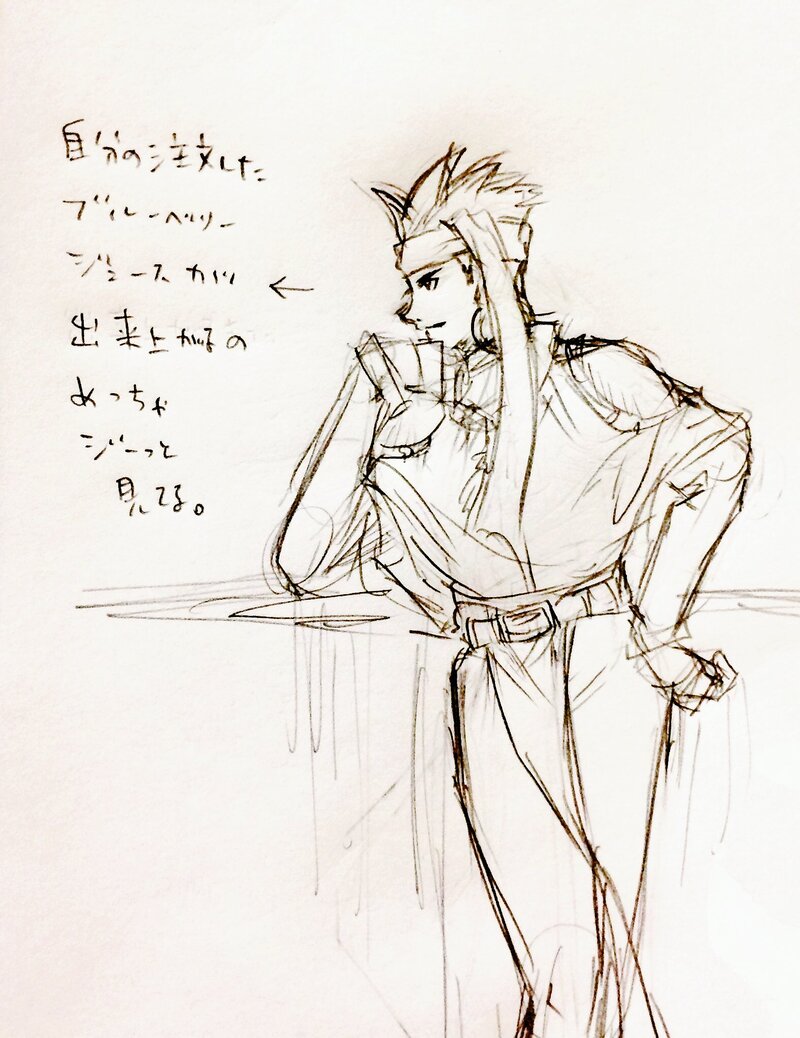 自分の注文した
ブルーベリー
ジュースが
出来上がるの
めっちゃ
ジーっと
見てる。